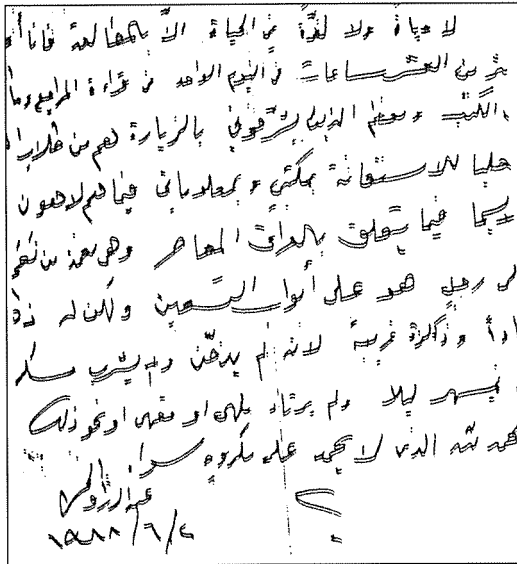 لا حياة ولا لذة في الحياة الا بالمطالعة فانا أ
من العشر ساعات في اليوم الواحد في قراءة المراجع وما
الكتب ومعظم الذين يشرفوني بالزيارة هم من طلاب ا
طلبا للاستعانة بمكتبتي وبمعلوماتي فيما هم لاهون
سيما فيما يتعلق بالعراق المعاصر وهي نعمة من نعم
رجل هو على أبواب التسعين ولكن له ذا
وذاكرة غريبة لانه لم يدخن ولم يشرب مسكر
يسهر ليلا ولم يرتاد ملهى او مقهى او نحو ذلك
الحمد لله الذي لا يحمد على مكروه سواه
عبد الرزاق الحسني
١٩٨٨/٦/٤